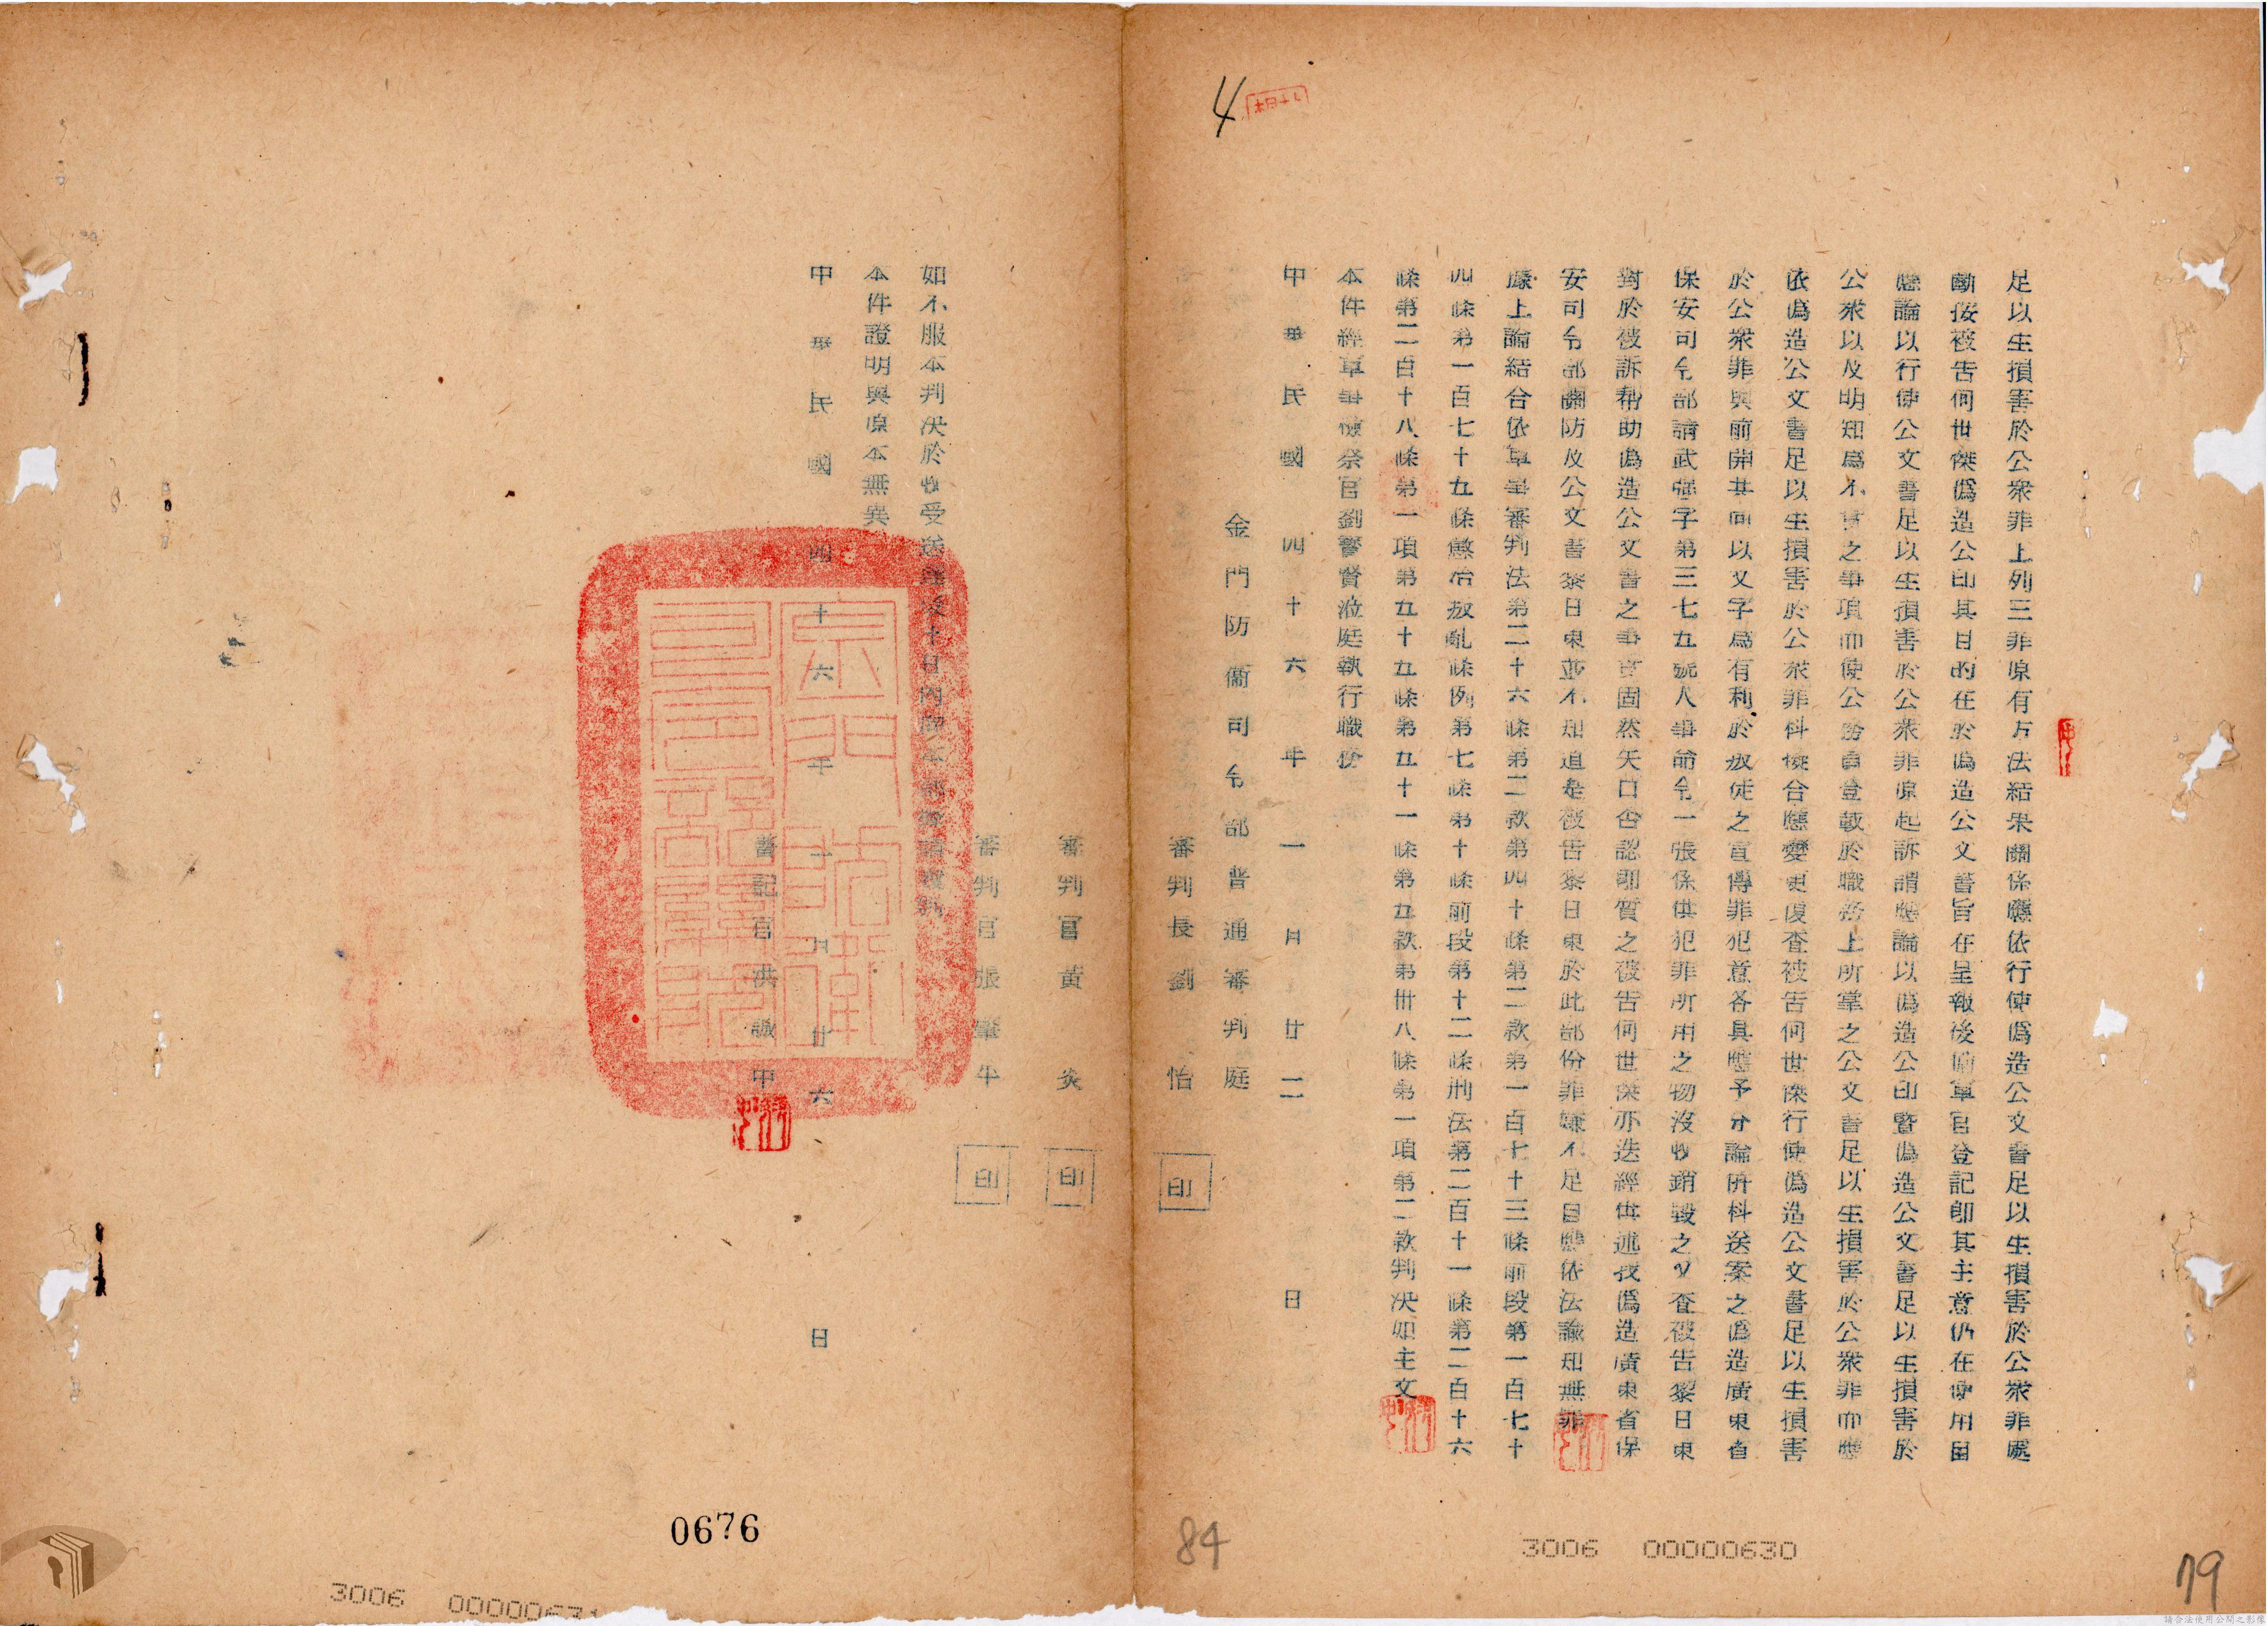 4
足以生損害於公衆罪上列三罪原有方法結果關係應依行使偽造公文書足以生損害於公衆罪處
斷按被告何世傑偽造公印其目的在於偽造公文書旨在呈報後備軍官登記即其主意仍在使用固
應論以行使公文書足以生損害於公衆罪原起訴謂應論以偽造公印暨偽造公文書足以生損害於
公衆以及明知為不實之事項而使公務員登載於職務上所掌之公文書足以生損害於公衆罪而應
依偽造公文書足以生損害於公衆罪科擬合應變更復查被告何世傑行使偽造公文書足以生損害
於公衆罪與前開其向以文字為有利於叛徒之宣傳罪犯意各具應予分論所科送案之偽造廣東省
保安司令部請武強字第三七五號人事命令一張係供犯罪所用之物沒收銷毀之又查被告黎日東
對於被訴幫助偽造公文書之事實固然矢口否認即質之被告何世傑亦迭經供述我偽造廣東省保
安司令部關防及公文書黎日東並不知道是被告黎日東於此部份罪嫌不足自應依法諭知無罪
據上論結合依軍事審判法第二十六條第二款第四十條第二款第一百七十三條前段第一百七十
四條第一百七十五條懲治叛亂條例第七條第十條前段第十二條刑法第二百十一條第二百十六
條第二百十八條第一項第五十五條第五十一條第五款第卅八條第一項第二款判決如主文
本件經軍事檢察官劉警賢涖庭執行職務
中華民國四十六年一月廿二日
金門防衛司令部普通審判庭
審判長劉怡
印
審判官黃炎
印
審判官張肇平
印
如不服本判決於收受送達後十日內向本部聲請覆判
本件證明與原本無異
中華民國四十六年一月廿六日
書記官洪誠中
0676
84
3006 00000630
79
3006 00000631
請合法使用公開之影像